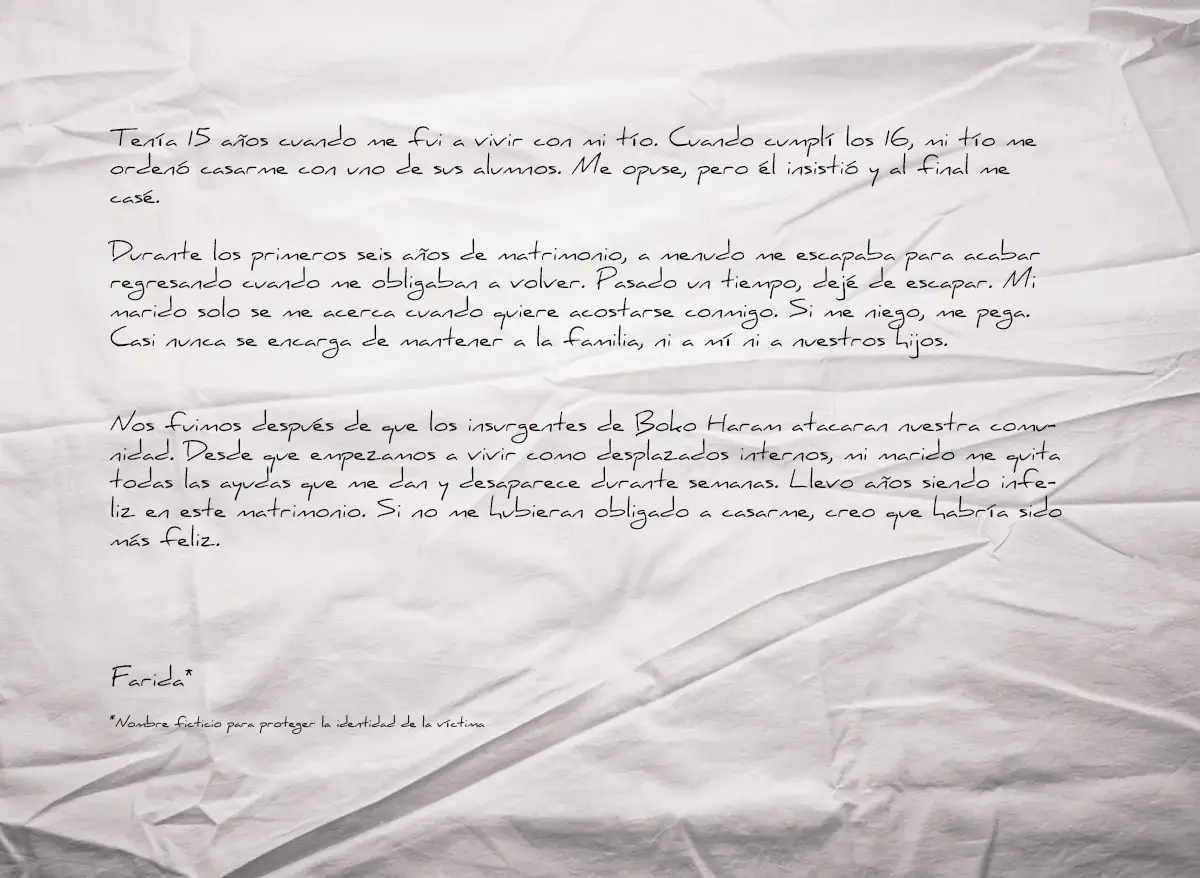 Tenía 15 años cuando me fui a vivir con mi tío. Cuando cumplí los 16, mi tío me
ordenó casarme con uno de sus alumnos. Me opuse, pero él insistió y al final me
casé.
Durante los primeros seis años de matrimonio, a menudo me escapaba para acabar
regresando cuando me obligaban a volver. Pasado un tiempo, dejé de escapar. Mi
marido solo se me acerca cuando quiere acostarse conmigo. Si me niego, me pega.
Casi nunca se encarga de mantener a la familia, ni a mí ni a nuestros hijos.
Nos fuimos después de que los insurgentes de Boko Haram atacaran nuestra comu-
nidad. Desde que empezamos a vivir como desplazados internos, mi marido me quita
todas las ayudas que me dan y desaparece durante semanas. Llevo años siendo infe-
liz en este matrimonio. Si no me hubieran obligado a casarme, creo que habría sido
más feliz.
Farida*
*Nombre ficticio para proteger la identidad de la víctima